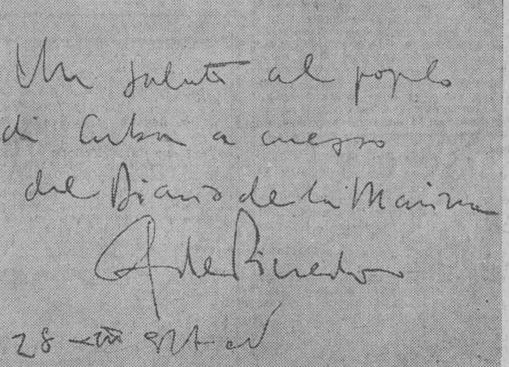 Un saluto al popolo
di Cuba a mezzo
del Diario de la Marina
de Pinedo
28